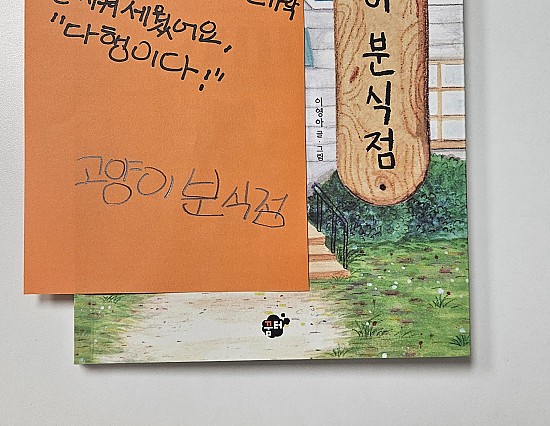 세웠어요,
"다행이다!"
고양이 분식점
이 분식점
이영아 글·그림
꿈터